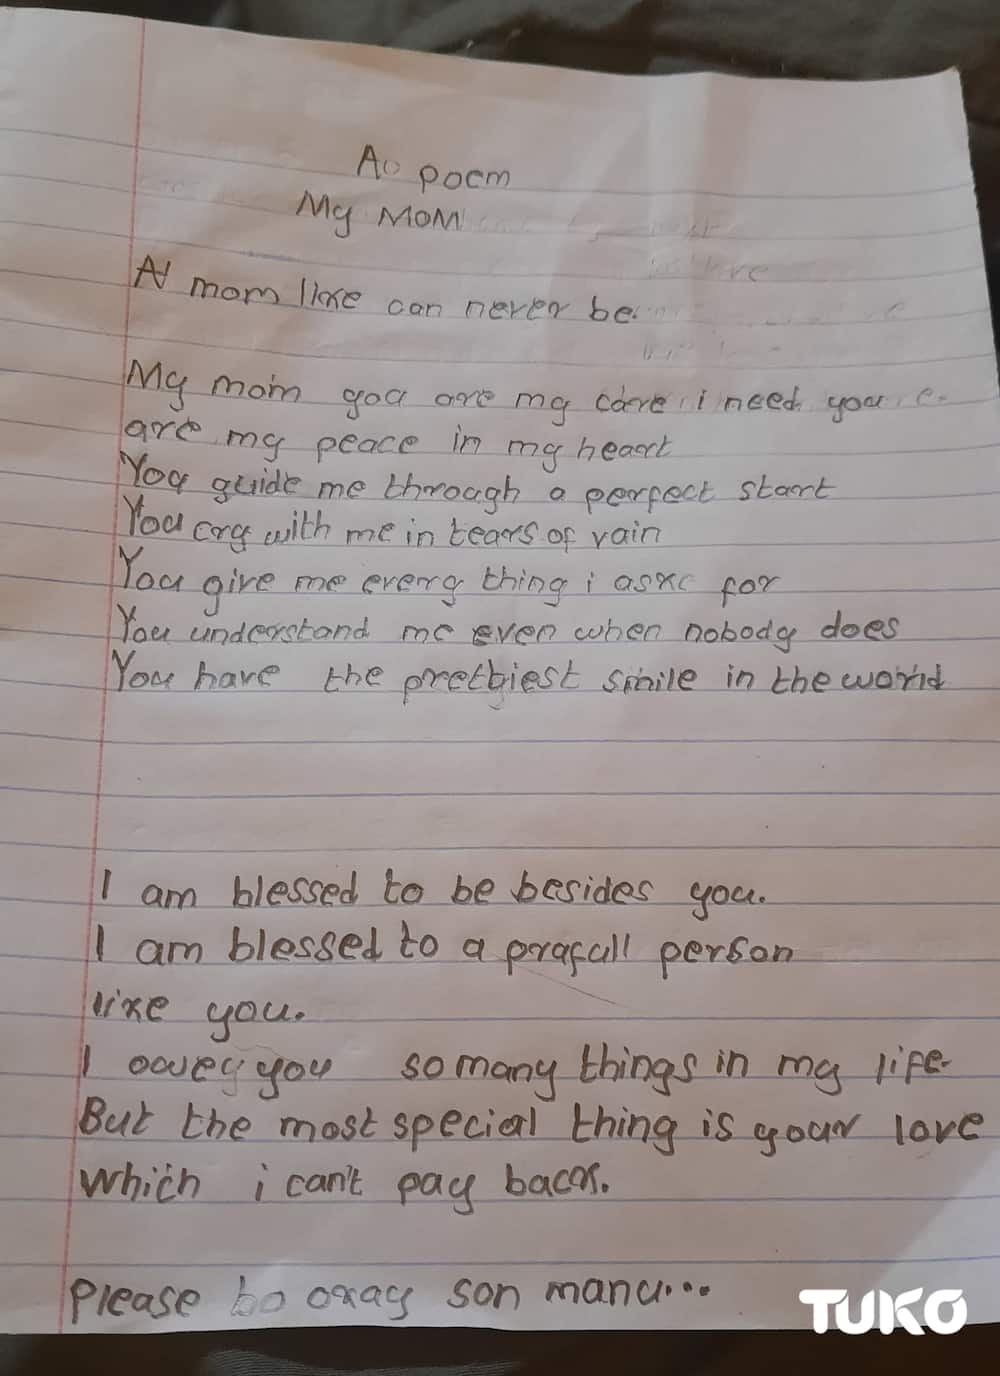 A poem
My MOM
A mom like can never be.
My mom you are my core i need you
are my peace in my heart
You guide me through a perfect start
You cry with me in tears of rain
You give me every thing i aske for
You understand me even when nobody does
You have the prettiest smile in the world
I am blessed to be besides you.
I am blessed to a prafull person
like you.
I owey you so many things in my life
But the most special thing is your love
which i can't pay back.
Please bo okay son manu...
TUKO